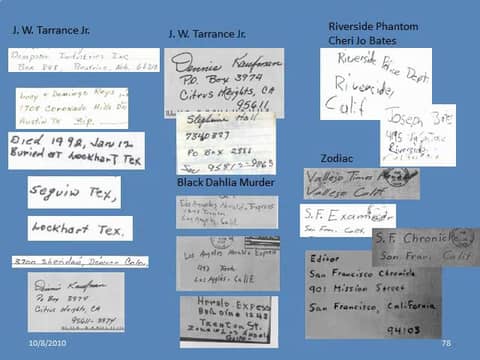 J. W. Tarrance Jr.
Dempster Industries Inc
Box 848, Beatrice, Neb.
1708 Coronado Hills Dr
Austin Tx
Died 1992, Jan 12
Buried at Lockhart Tex
Seguin Tex,
Lockhart Tex.
3700 Sheridan, Denver Colo.
Dennis Kaufman
PO Box 3974
Citrus Heights, CA
95611-3974
J. W. Tarrance Jr.
Dennis Kaufman
P.O. Box 3974
Citrus Heights, CA
95611
Stephanie Hall
7340827
PO Box 2881
Sac 95812-
Black Dahlia Murder
Los Angeles Herald, Express
Los Angeles, Calif.
Los Angeles Herald Express
Los Angeles - Calif
Herald Express
Riverside Phantom
Cheri Jo Bates
Riverside Police Dept
Riverside,
Calif
Joseph
Riverside
Zodiac
Vallejo Times
Vallejo Calif
S.F. Examiner
San Fran. Calif
S.F. Chronicle
San Fran. Calif
Editor
San Francisco Chronicle
901 Mission Street
San Francisco, California
94103
10/8/2010
78